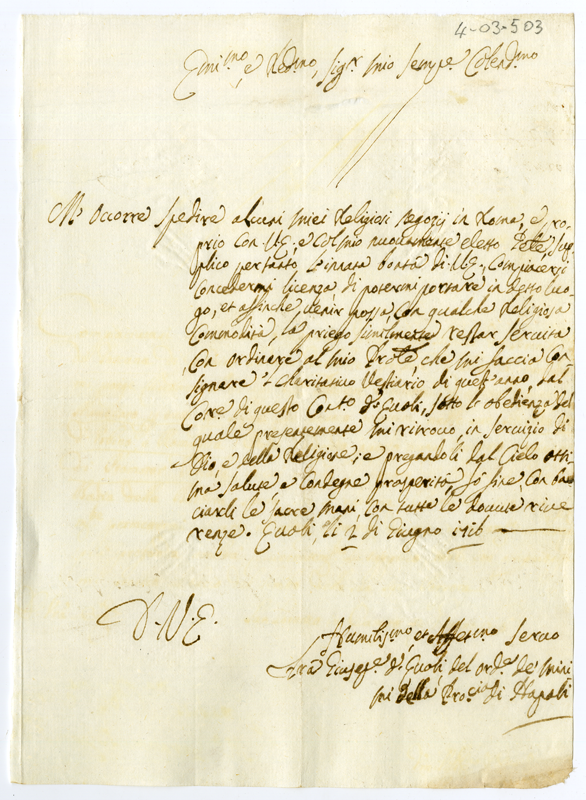 4-03-503
Emi.mo, e Red.mo, Sig.r mio sempre Colend.mo
Mi occorre spedire alcuni miei Religiosi Negozij in Roma, e pro-
prio con V.E. e col mio nuovamente eletto Prõle, sup
plico per tanto l'innata bontà di V.E., compiacersi
concedermi licenza di potermi portare in detto luo-
go, et affinche venir possa con qualche Religiosa
commodità, la priego similmente restar servita
con ordinare al mio Prõle che mi faccia con
signare il charitativo Vestiario di quest'anno, dal
Core di questo Con.to d'Evoli, sotto l'obedienza del
quale presentemente mi ritrovo, in servizio di
Dio, e della Religione; e pregandoli dal Cielo otti
ma salute e condegne prosperità, fò fine con ba
ciarli le sacre mani, con tutte le dovute rive
renze. Evoli, li 2 di Giugno 1716
D.V.E.
Humilissimo, et Affet.mo servo
Fra Giusep.e d'Evoli del ord.e de Mini
mi della Pro.cia di Napoli